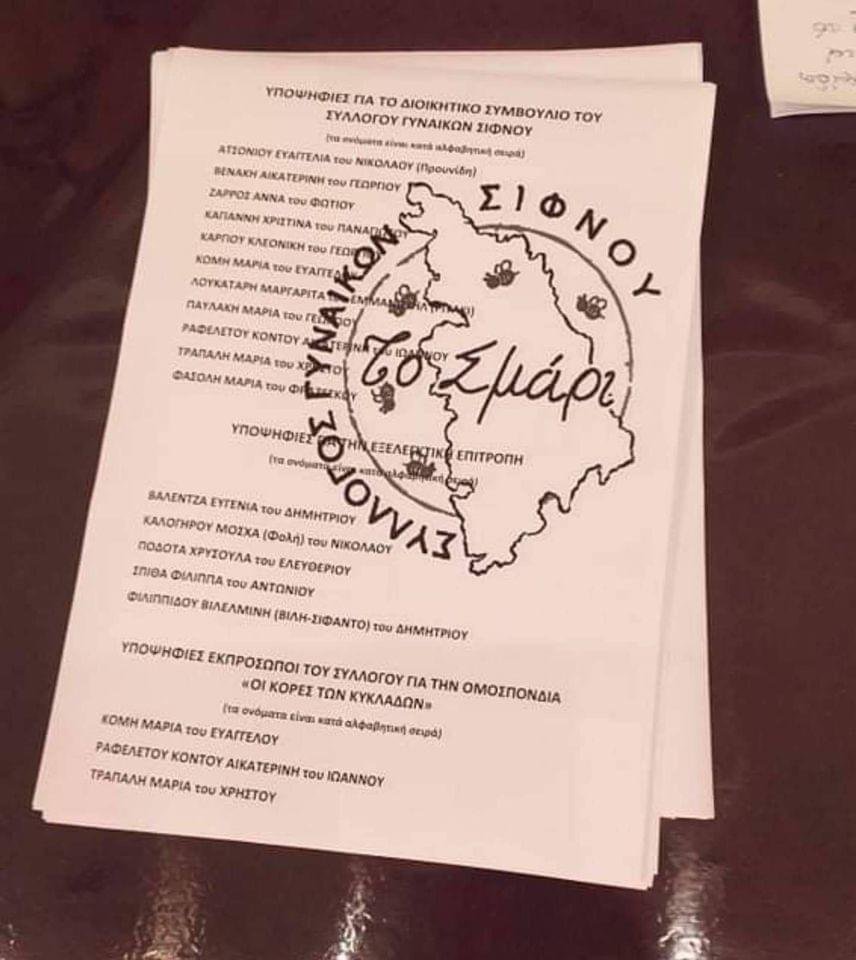 ΥΠΟΨΗΦΙΕΣ ΓΙΑ ΤΟ ΔΙΟΙΚΗΤΙΚΟ ΣΥΜΒΟΥΛΙΟ ΤΟΥ
ΣΥΛΛΟΓΟΥ ΓΥΝΑΙΚΩΝ ΣΙΦΝΟΥ
(τα ονόματα είναι κατά αλφαβητική σειρά)
ΑΤΣΟΝΙΟΥ ΕΥΑΓΓΕΛΙΑ του ΝΙΚΟΛΑΟΥ (Προυνίδη)
ΒΕΝΑΚΗ ΑΙΚΑΤΕΡΙΝΗ του ΓΕΩΡΓΙΟΥ
ΖΑΡΡΟΣ ΑΝΝΑ του ΦΩΤΙΟΥ
ΚΑΓΙΑΝΝΗ ΧΡΙΣΤΙΝΑ του ΠΑΝΑΓΙΩΤΟΥ
ΚΑΡΓΙΟΥ ΚΛΕΟΝΙΚΗ του
ΚΟΜΗ ΜΑΡΙΑ του ΕΥΑΓΓΕΛΟΥ
ΛΟΥΚΑΤΑΡΗ ΜΑΡΓΑΡΙΤΑ του ΕΜΜΑΝΟΥΗΛ
ΠΑΥΛΑΚΗ ΜΑΡΙΑ του
ΡΑΦΕΛΕΤΟΥ ΚΟΝΤΟΥ ΑΙΚΑΤΕΡΙΝΗ του ΙΩΑΝΝΟΥ
ΤΡΑΠΑΛΗ ΜΑΡΙΑ του ΧΡΗΣΤΟΥ
ΦΑΣΟΛΗ ΜΑΡΙΑ του ΦΡΑΤΖΕΣΚΟΥ
ΣΥΛΛΟΓΟΣ ΓΥΝΑΙΚΩΝ ΣΙΦΝΟΥ
το Σμάρι
ΥΠΟΨΗΦΙΕΣ ΓΙΑ ΤΗΝ ΕΞΕΛΕΓΚΤΙΚΗ ΕΠΙΤΡΟΠΗ
(τα ονόματα είναι κατά αλφαβητική σειρά)
ΒΑΛΕΝΤΖΑ ΕΥΓΕΝΙΑ του ΔΗΜΗΤΡΙΟΥ
ΚΑΛΟΓΗΡΟΥ ΜΟΣΧΑ (Φολή) του ΝΙΚΟΛΑΟΥ
ΠΟΔΟΤΑ ΧΡΥΣΟΥΛΑ του ΕΛΕΥΘΕΡΙΟΥ
ΣΠΙΘΑ ΦΙΛΙΠΠΑ του ΑΝΤΩΝΙΟΥ
ΦΙΛΙΠΠΙΔΟΥ ΒΙΛΕΛΜΙΝΗ (ΒΙΛΗ-ΣΙΦΑΝΤΟ) του ΔΗΜΗΤΡΙΟΥ
ΥΠΟΨΗΦΙΕΣ ΕΚΠΡΟΣΩΠΟΙ ΤΟΥ ΣΥΛΛΟΓΟΥ ΓΙΑ ΤΗΝ ΟΜΟΣΠΟΝΔΙΑ
«ΟΙ ΚΟΡΕΣ ΤΩΝ ΚΥΚΛΑΔΩΝ»
(τα ονόματα είναι κατά αλφαβητική σειρά)
ΚΟΜΗ ΜΑΡΙΑ του ΕΥΑΓΓΕΛΟΥ
ΡΑΦΕΛΕΤΟΥ ΚΟΝΤΟΥ ΑΙΚΑΤΕΡΙΝΗ του ΙΩΑΝΝΟΥ
ΤΡΑΠΑΛΗ ΜΑΡΙΑ του ΧΡΗΣΤΟΥ